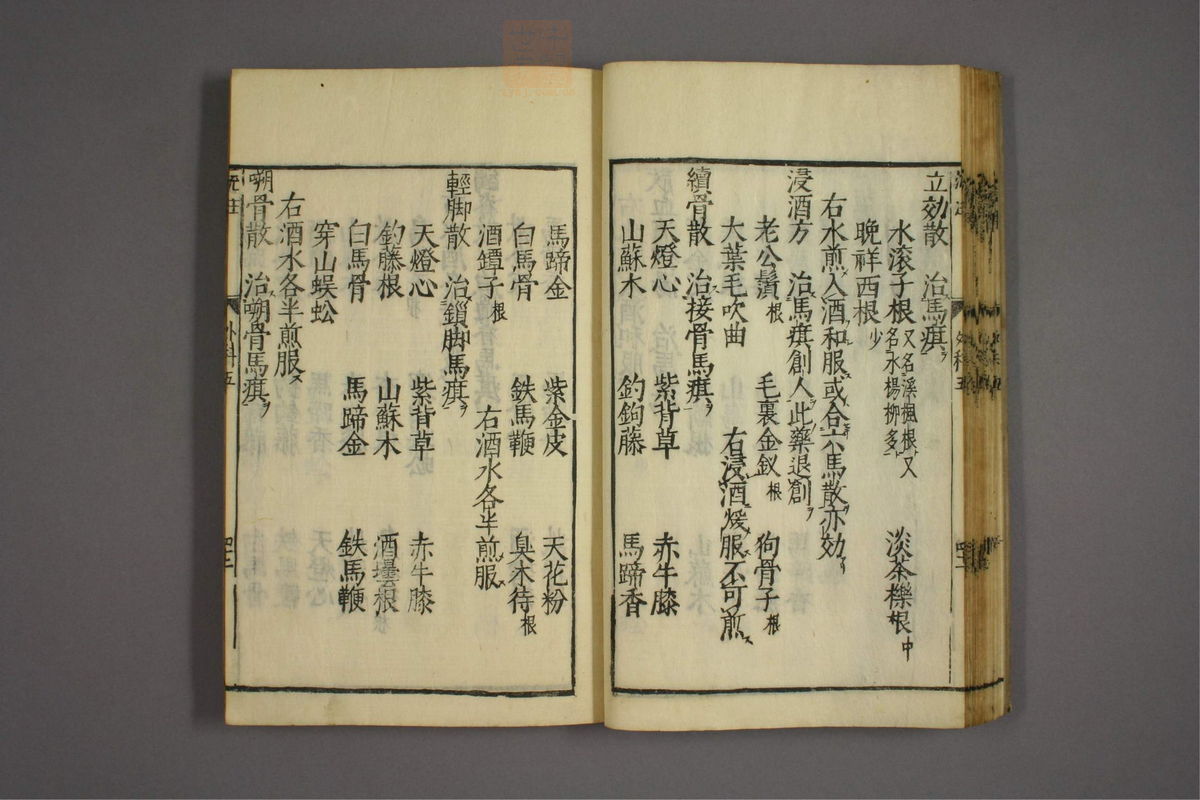 立効散　治馬㾏ヲ
水滾子根 又名溪楓根又名水楊柳多　淡茶櫟根中
晩祥西根少
右水煎入酒和服或合六馬散亦効
浸酒方　治馬㾏創人此藥退創ヲ
老公鬚根　毛裏金釵根　狗骨子根
大葉毛吹曲　右浸酒煖服不可煎
續骨散　治接骨馬㾏ヲ
天燈心　紫背草　赤牛膝
山蘇木　釣鉤藤　馬蹄香
外科五
馬蹄金　紫金皮　天花粉
白馬骨　鉄馬鞭　臭木待根
酒鐔子根　右酒水各半煎服
輕脚散　治鎖脚馬㾏ヲ
天燈心　紫背草　赤牛膝
釣藤根　山蘇木　酒壜根
白馬骨　馬蹄金　鉄馬鞭
穿山蜈蚣
右酒水各半煎服
嗍骨散　治嗍骨馬㾏ヲ
外科五